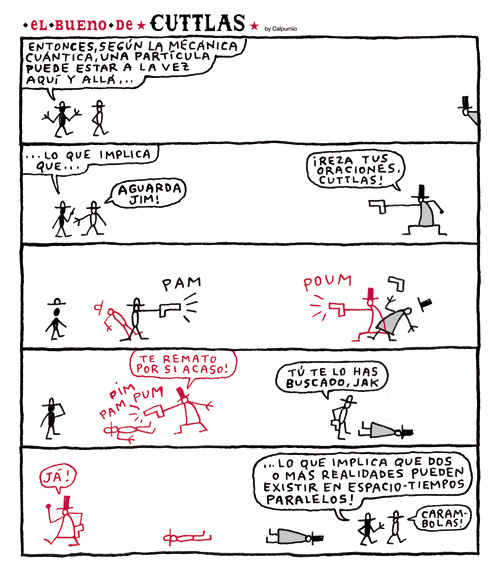 EL BUENO DE CUTTLAS
by Calpurnio
ENTONCES, SEGÚN LA MECÁNICA
CUÁNTICA, UNA PARTÍCULA
PUEDE ESTAR A LA VEZ
AQUÍ Y ALLÁ...
...LO QUE IMPLICA
QUE...
AGUARDA
JIM!
¡REZA TUS
ORACIONES,
CUTTLAS!
PAM
POUM
TE REMATO
POR SI ACASO!
PIM
PAM PUM
TÚ TE LO HAS
BUSCADO, JAK
JÁ!
...LO QUE IMPLICA QUE DOS
O MÁS REALIDADES PUEDEN
EXISTIR EN ESPACIO-TIEMPOS
PARALELOS!
CARAM-
BOLAS!